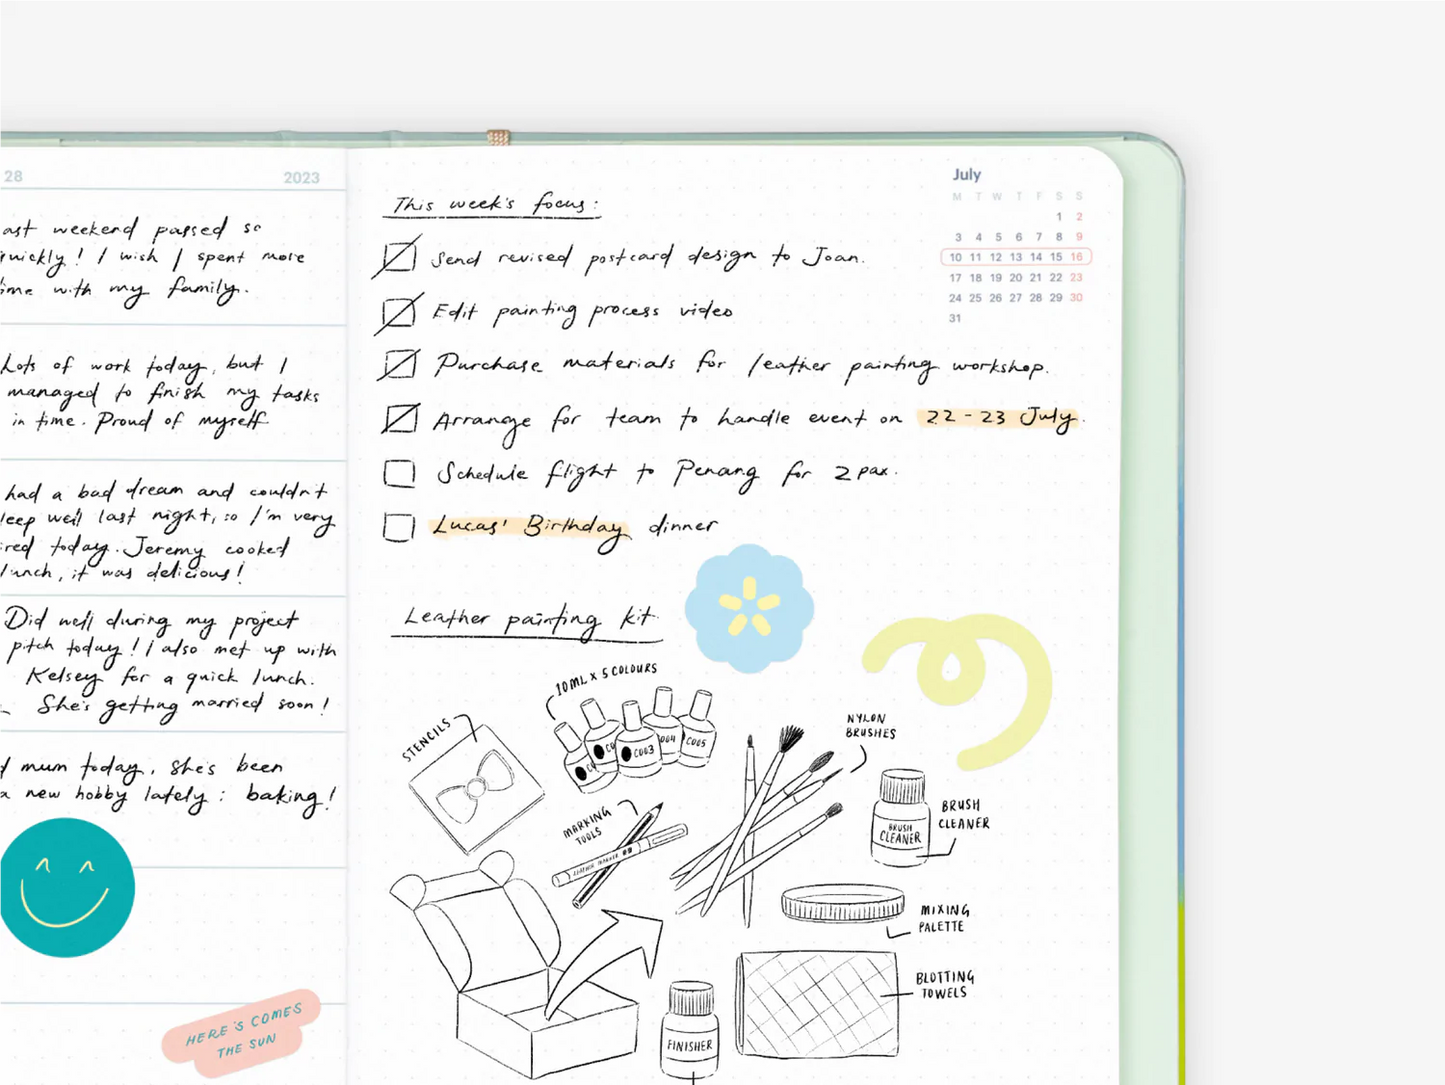 28 2023
ast weekend passed so
quickly! I wish I spent more
ime with my family.
Lots of work today, but I
managed to finish my tasks
in time. Proud of myself
had a bad dream and couldn't
leep well last night, so I'm very
ired today. Jeremy cooked
lunch, it was delicious!
Did well during my project
pitch today! I also met up with
Kelsey for a quick lunch.
She's getting married soon!
mum today, she's been
a new hobby lately: baking!
HERE'S COMES
THE SUN
July
M T W T F S S
1 2
3 4 5 6 7 8 9
10 11 12 13 14 15 16
17 18 19 20 21 22 23
24 25 26 27 28 29 30
31
This week's focus:
Send revised postcard design to Joan.
Edit painting process video
Purchase materials for leather painting workshop.
Arrange for team to handle event on 22-23 July.
Schedule flight to Penang for 2 pax.
Lucas' Birthday dinner
Leather painting kit
10ML X 5 COLOURS
STENCILS
C003
004
C005
NYLON
BRUSHES
MARKING
TOOLS
BRUSH
CLEANER
BRUSH
CLEANER
MIXING
PALETTE
BLOTTING
TOWELS
FINISHER